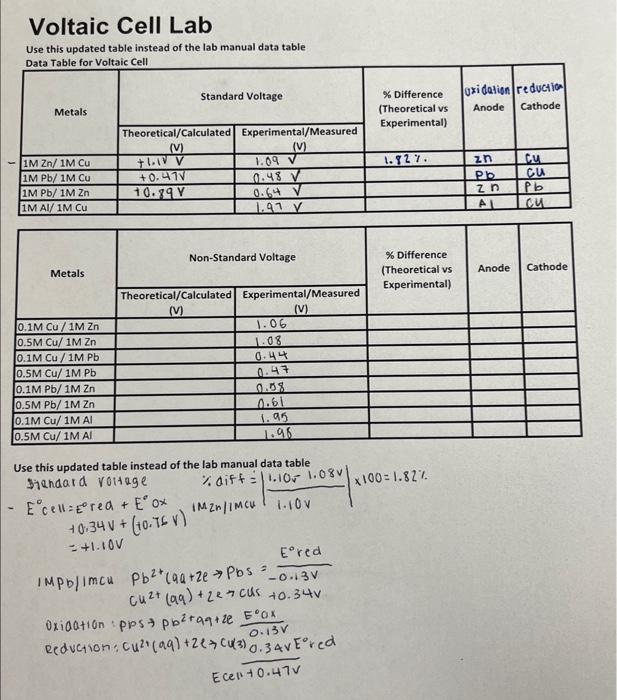 Voltaic Cell Lab
Use this updated table instead of the lab manual data table
Data Table for Voltaic Cell
Metals Standard Voltage % Difference (Theoretical vs Experimental) oxidation Anode reduction Cathode
Theoretical/Calculated (V) Experimental/Measured (V)
1M Zn/ 1M Cu +1.10 V 1.09 V 1.82%. Zn Cu
1M Pb/ 1M Cu +0.47V 0.48 V Pb Cu
1M Pb/ 1M Zn +0.89V 0.64 V Zn Pb
1M Al/ 1M Cu 1.97 V Al Cu
Metals Non-Standard Voltage % Difference (Theoretical vs Experimental) Anode Cathode
Theoretical/Calculated (V) Experimental/Measured (V)
0.1M Cu / 1M Zn 1.06
0.5M Cu/ 1M Zn 1.08
0.1M Cu / 1M Pb 0.44
0.5M Cu/ 1M Pb 0.47
0.1M Pb/ 1M Zn 0.58
0.5M Pb/ 1M Zn 0.61
0.1M Cu/ 1M Al 1.95
0.5M Cu/ 1M Al
Use this updated table instead of the lab manual data table
Standard voltage % diff = |1.10- 1.08V| x100=1.82%
- E°cell=E°red + E°ox 1MZn/1MCu 1.10V
+0.34V + (+0.76 V)
= +1.10V
E°red
1MPb/1mcu Pb2+(aq+2e → Pbs = -0.13V
Cu2+ (aq) + 2e → Cus +0.34V
Oxidation : pbs → pb2+aq+2e E°ox
0.13V
Reduction: Cu2+(aq)+2e→ Cu(s) 0.34V E°red
Ecell +0.47V